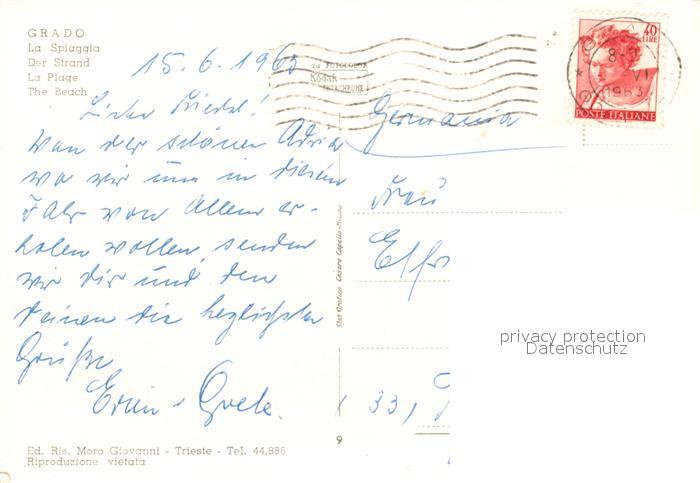 GRADO
La Spiaggia
Der Strand
La Plage
The Beach
15.6.1963
da FOTOCOLOR
Kodak
EKTACHROME
40
LIRE
8-
VI
1963
POSTE ITALIANE
Liebe Friedel!
Von der schönen Adria
wo wir uns in diesem
Jahr von Allem er-
holen wollen, senden
wir Dir und den
Deinen die herzlichsten
Grüße
Erwin + Grete.
Germania
Frau
Elfr
(33)
Stab. Grafico Cesare Capello - Milano
privacy protection
Datenschutz
9
Ed. Ris. Moro Giovanni - Trieste - Tel. 44,886
Riproduzione vietata